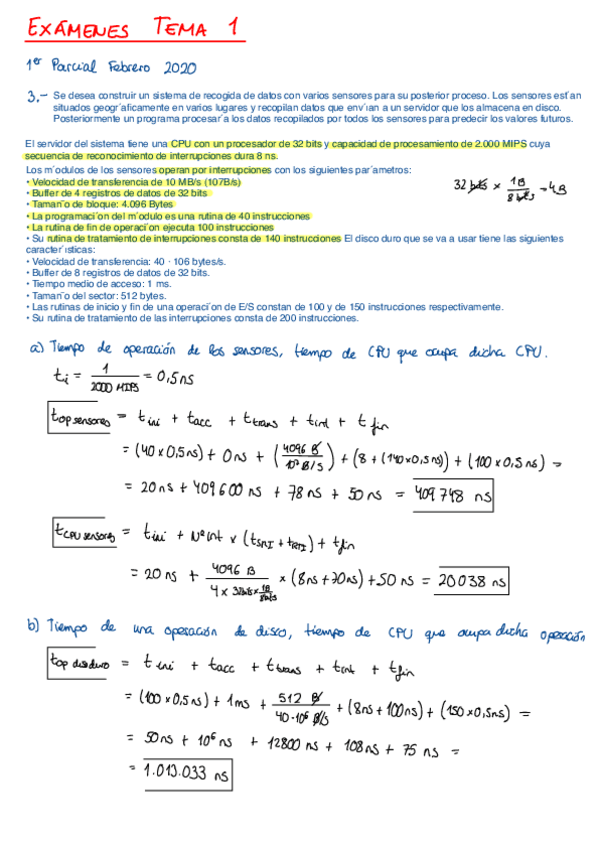 EXÁMENES TEMA 1
1er Parcial Febrero 2020
3.- Se desea construir un sistema de recogida de datos con varios sensores para su posterior proceso. Los sensores est´an
situados geogr´aficamente en varios lugares y recopilan datos que env´ıan a un servidor que los almacena en disco.
Posteriormente un programa procesar´a los datos recopilados por todos los sensores para predecir los valores futuros.
El servidor del sistema tiene una CPU con un procesador de 32 bits y capacidad de procesamiento de 2.000 MIPS cuya
secuencia de reconocimiento de interrupciones dura 8 ns.
Los m´odulos de los sensores operan por interrupciones con los siguientes par´ametros:
• Velocidad de transferencia de 10 MB/s (107B/s)
• Buffer de 4 registros de datos de 32 bits
32 bits × 1B / 8 bits = 4B
• Taman˜o de bloque: 4.096 Bytes
• La programaci´on del m´odulo es una rutina de 40 instrucciones
• La rutina de fin de operaci´on ejecuta 100 instrucciones
• Su rutina de tratamiento de interrupciones consta de 140 instrucciones El disco duro que se va a usar tiene las siguientes
caracter´ısticas:
• Velocidad de transferencia: 40 · 106 bytes/s.
• Buffer de 8 registros de datos de 32 bits.
• Tiempo medio de acceso: 1 ms.
• Taman˜o del sector: 512 bytes.
• Las rutinas de inicio y fin de una operaci´on de E/S constan de 100 y de 150 instrucciones respectivamente.
• Su rutina de tratamiento de las interrupciones consta de 200 instrucciones.
a) Tiempo de operación de los sensores, tiempo de CPU que ocupa dicha CPU.
ti = 1 / 2000 MIPS = 0,5 ns
top sensores = tini + tacc + ttrans + tint + tfin
= (40 × 0,5 ns) + 0 ns + (4096 B / 10⁷ B/s) + (8 + (140 × 0,5 ns)) + (100 × 0,5 ns) =
= 20 ns + 409600 ns + 78 ns + 50 ns = 409748 ns
tCPU sensores = tini + Nº int × (tSRI + tRTI) + tfin
= 20 ns + 4096 B / 4 × 32 bits × 1B / 8 bits × (8 ns + 70 ns) + 50 ns = 20038 ns
b) Tiempo de una operación de disco, tiempo de CPU que ocupa dicha operación
top disco duro = tini + tacc + ttrans + tint + tfin
= (100 × 0,5 ns) + 1 ms + 512 B / 40·10⁶ B/s + (8 ns + 100 ns) + (150 × 0,5 ns) =
= 50 ns + 10⁶ ns + 12800 ns + 108 ns + 75 ns =
= 1.013.033 ns